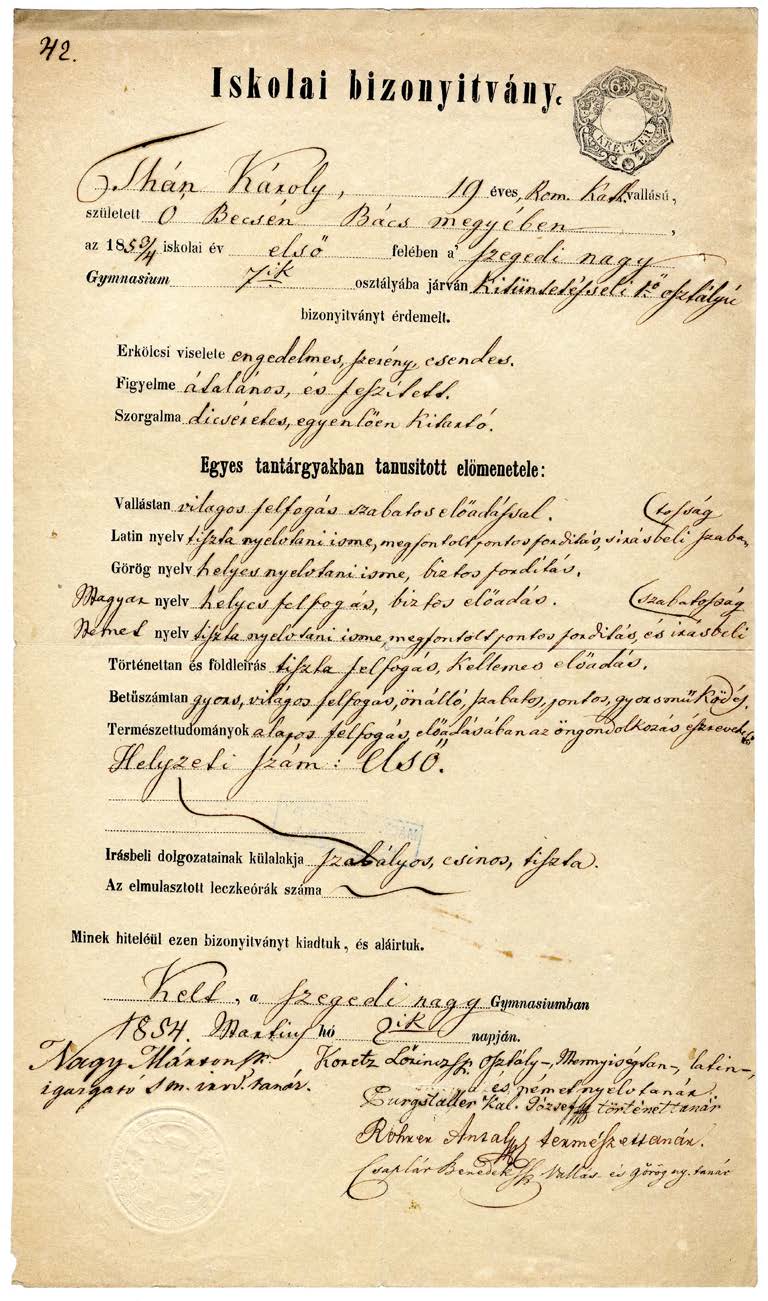 42.
Iskolai bizonyitvány.
6 K
KREUZER
Thán Károly, 19 éves, Rom. Kath. vallású,
született Ó Becsén Bács megyében
az 1853/4 iskolai év első felében a' szegedi nagy
Gymnasium 7ik osztályába járván Kitüntetésseli 1ő osztályú
bizonyitványt érdemelt.
Erkölcsi viselete engedelmes, szerény, csendes.
Figyelme átalános, és feszített.
Szorgalma dicséretes, egyenlően Kitartó.
Egyes tantárgyakban tanusitott elömenetele:
Vallástan világos felfogás szabatos előadással. (tosság
Latin nyelv tiszta nyelvtani isme, megfontolt pontos fordítás, s irásbeli szaba-
Görög nyelv helyes nyelvtani isme, biztos fordítás.
Magyar nyelv helyes felfogás, biztos előadás. (szabatosság
Német nyelv tiszta nyelvtani isme, megfontolt pontos fordítás, és irásbeli
Történettan és földleirás tiszta felfogás, Kellemes előadás.
Betüszámtan gyors, világos felfogás, önálló, szabatos, pontos, gyors működés.
Természettudományok alapos felfogás, előadásában az öngondolkozás észrevehető
Helyzeti szám: első.
Irásbeli dolgozatainak külalakja szabályos, csinos, tiszta.
Az elmulasztott leczkeórák száma
Minek hiteléül ezen bizonyitványt kiadtuk, és aláirtuk.
Kelt, a szegedi nagy Gymnasiumban
1854. Martius hó 2ik napján.
Nagy Márton sk. Koretz Lőrincz sk. osztály-, Mennyiségtan-, latin-,
igazgató s m. irod. tanár. és német nyelv tanár
Purgstaller Kal. József sk történettanár
Rohrer Antal sk természettanár.
Csaplár Benedek sk Vallás- és görög ny. tanár